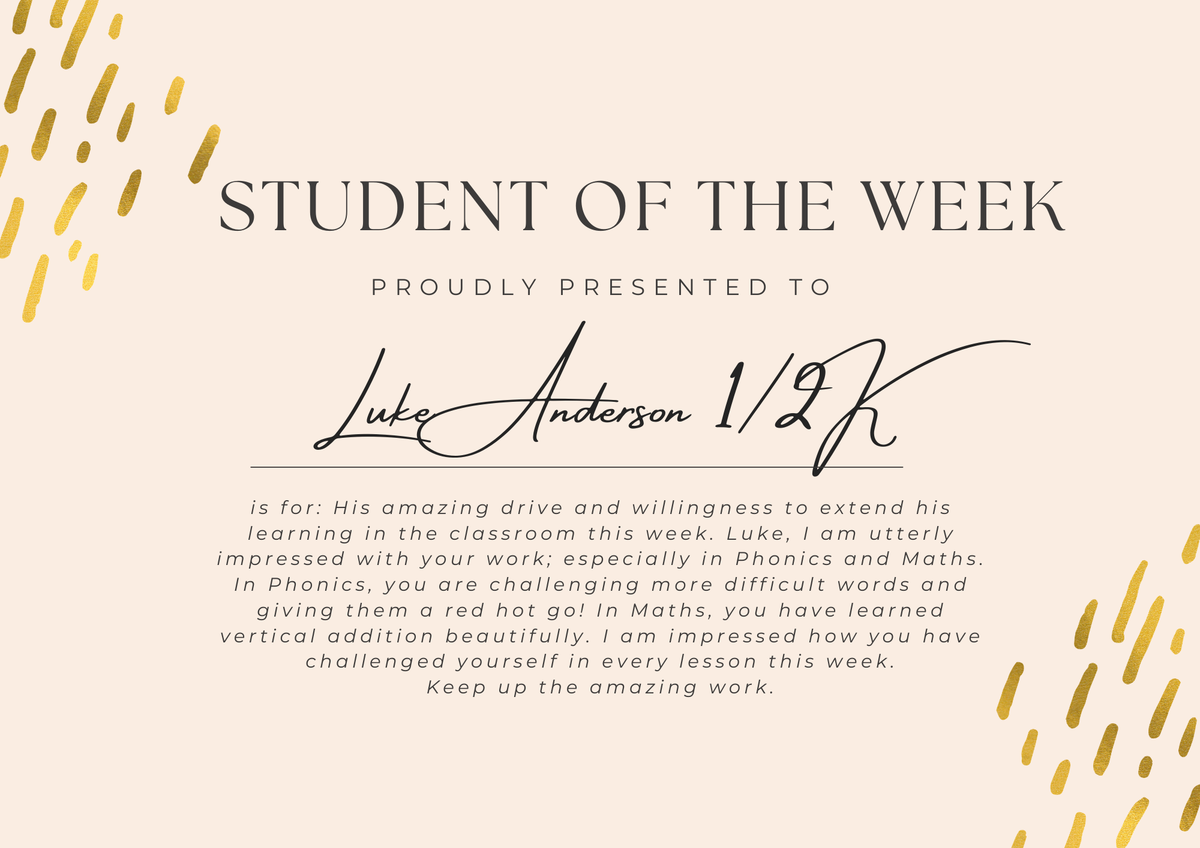 STUDENT OF THE WEEK
PROUDLY PRESENTED TO
Luke Anderson 1/2K
is for: His amazing drive and willingness to extend his
learning in the classroom this week. Luke, I am utterly
impressed with your work; especially in Phonics and Maths.
In Phonics, you are challenging more difficult words and
giving them a red hot go! In Maths, you have learned
vertical addition beautifully. I am impressed how you have
challenged yourself in every lesson this week.
Keep up the amazing work.